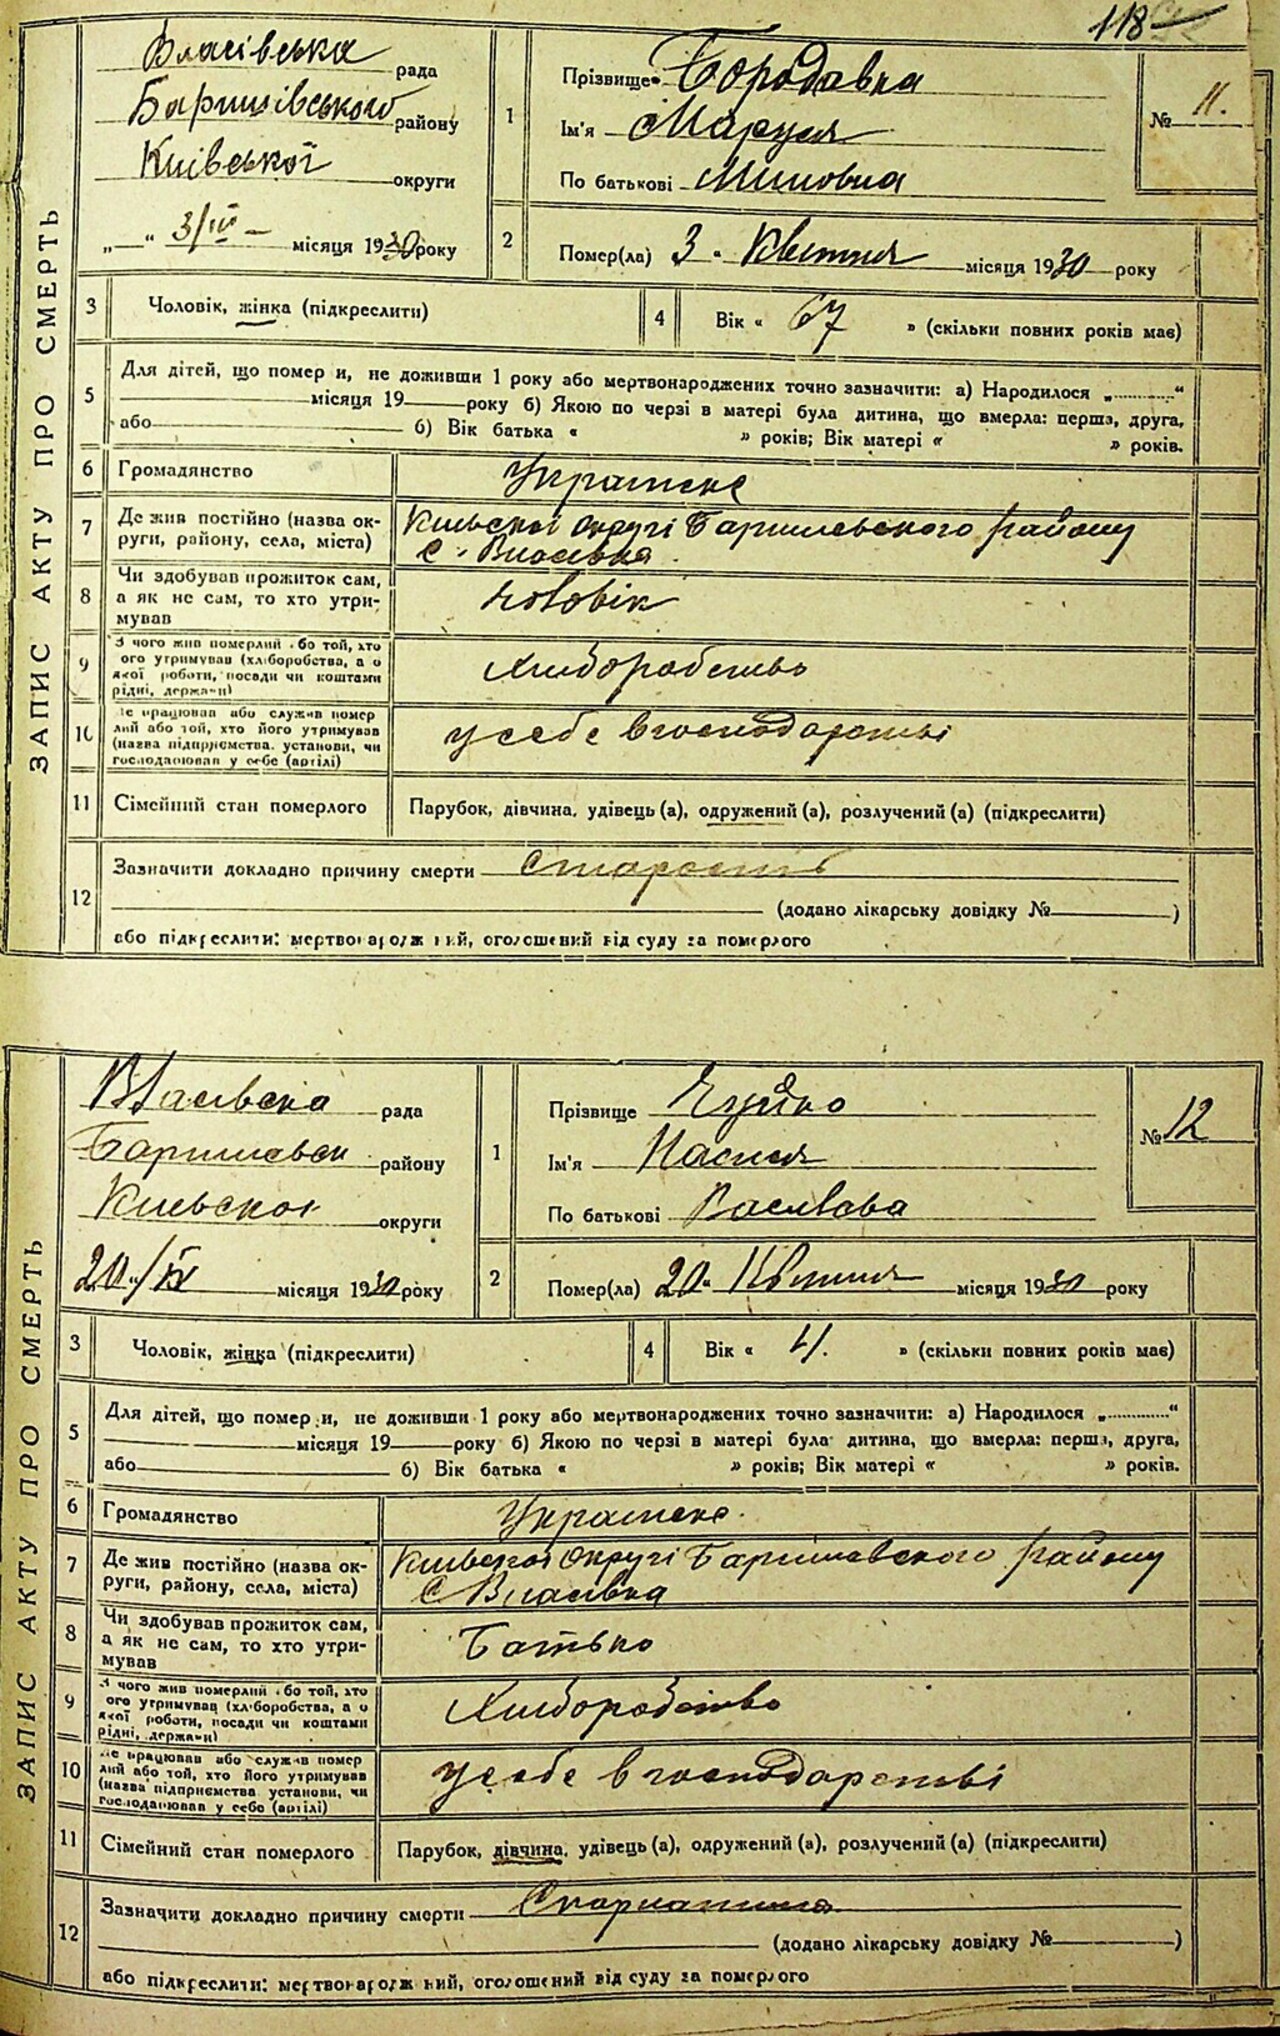 118
ЗАПИС АКТУ ПРО СМЕРТЬ
Власівська рада
Баришівського району
Київської округи
„—“ 3/III – місяця 1930 року
1
Прізвище Бородавка
Ім'я Маруся
По батькові
№ 11.
2
Помер(ла) 3 „ Квітня місяця 1930 року
3
Чоловік, жінка (підкреслити)
4
Вік « 67 » (скільки повних років має)
5
Для дітей, що помер и, не доживши 1 року або мертвонароджених точно зазначити: а) Народилося „..........“
місяця 19 року б) Якою по черзі в матері була дитина, що вмерла: перша, друга,
або б) Вік батька « » років; Вік матері « » років.
6
Громадянство
Украинске
7
Де жив постійно (назва ок-
руги, району, села, міста)
Киівскоі округі Баришевского району
с. Власівка
8
Чи здобував прожиток сам,
а як не сам, то хто утри-
мував
Чоловік
9
З чого жив померлий або той, хто
ого утримував (хліборобства, а о
якої роботи, посади чи коштами
рідні, держави)
Хлиборобство
10
Де працював або служив помер
лий або той, хто його утримував
(назва підприємства, установи, чи
господарював у себе (артілі)
у себе в господарстві
11
Сімейний стан померлого
Парубок, дівчина, удівець (а), одружений (а), розлучений (а) (підкреслити)
12
Зазначити докладно причину смерти Старость
(додано лікарську довідку № )
або підкреслити: мертвонароджений, оголошений від суду за померлого
ЗАПИС АКТУ ПРО СМЕРТЬ
Власівска рада
Баришевск району
Киевскоі округи
20 „/IV місяця 1930 року
1
Прізвище
Ім'я Настя
По батькові Василєва
№ 12
2
Помер(ла) 20 „ Квітня місяця 1930 року
3
Чоловік, жінка (підкреслити)
4
Вік « 4. » (скільки повних років має)
5
Для дітей, що помер и, не доживши 1 року або мертвонароджених точно зазначити: а) Народилося „..........“
місяця 19 року б) Якою по черзі в матері була дитина, що вмерла: перша, друга,
або б) Вік батька « » років; Вік матері « » років.
6
Громадянство
Украинске.
7
Де жив постійно (назва ок-
руги, району, села, міста)
Киівскоі округі Баришевского району
с Власівка
8
Чи здобував прожиток сам,
а як не сам, то хто утри-
мував
Батько
9
З чого жив померлий або той, хто
ого утримував (хліборобства, а о
якої роботи, посади чи коштами
рідні, держави)
Хлиборобство
10
Де працював або служив помер
лий або той, хто його утримував
(назва підприємства установи, чи
господарював у себе (артілі)
у себе в господарстві
11
Сімейний стан померлого
Парубок, дівчина, удівець (а), одружений (а), розлучений (а) (підкреслити)
12
Зазначити докладно причину смерти Скарлатина
(додано лікарську довідку № )
або підкреслити: мертвонароджений, оголошений від суду за померлого